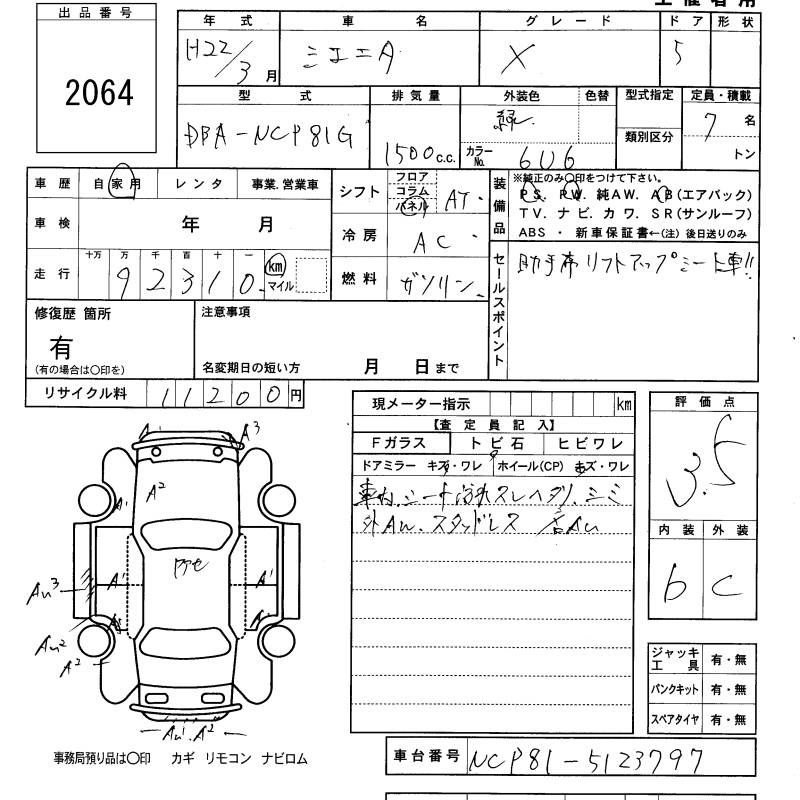 出品番号
2064
年式 車名 グレード ドア 形状
H22/3月 シエンタ X 5
型式 排気量 外装色 色替 型式指定 定員・積載
DBA-NCP81G 1500c.c. 緑 カラーNo. 6U6 類別区分 7名
トン
車歴 自家用 レンタ 事業.営業車
車検 年 月
走行 十万 万 千 百 十 一
92310. km マイル
シフト フロア コラム パネル AT.
冷房 AC
燃料 ガソリン
装備品
※純正のみ○印をつけて下さい。
PS. PW. 純AW. AB(エアバック)
TV. ナビ. カワ. SR(サンルーフ)
ABS ・ 新車保証書←(注) 後日送りのみ
セールスポイント
助手席リフトアップシート車!!
修復歴 箇所
有
(有の場合は○印を)
注意事項
名変期日の短い方 月 日まで
リサイクル料 11200円
現メーター指示 km
【査定員記入】
Fガラス トビ石 ヒビワレ
ドアミラー キズ・ワレ ホイール(CP) キズ・ワレ
車内.シート汚れスレヘタリ.シミ
外AU.スタッドレス
評価点
3.5
内装 外装
b C
A1 A3
A2
A1
A1 A1
AU3
AU2
A2
AU1.A2
ジャッキ工具 有・無
パンクキット 有・無
スペアタイヤ 有・無
事務局預り品は○印 カギ リモコン ナビロム
車台番号 NCP81-5123797